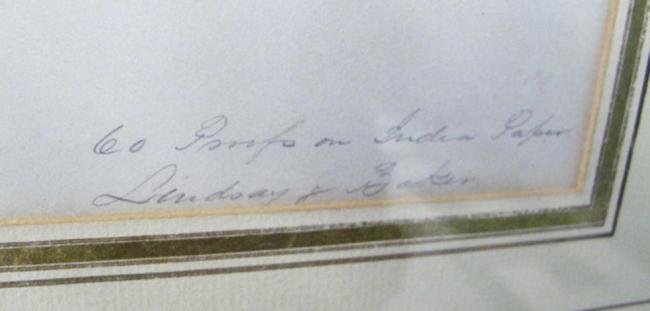 60 Proofs on India Paper
Lindsay & Baker